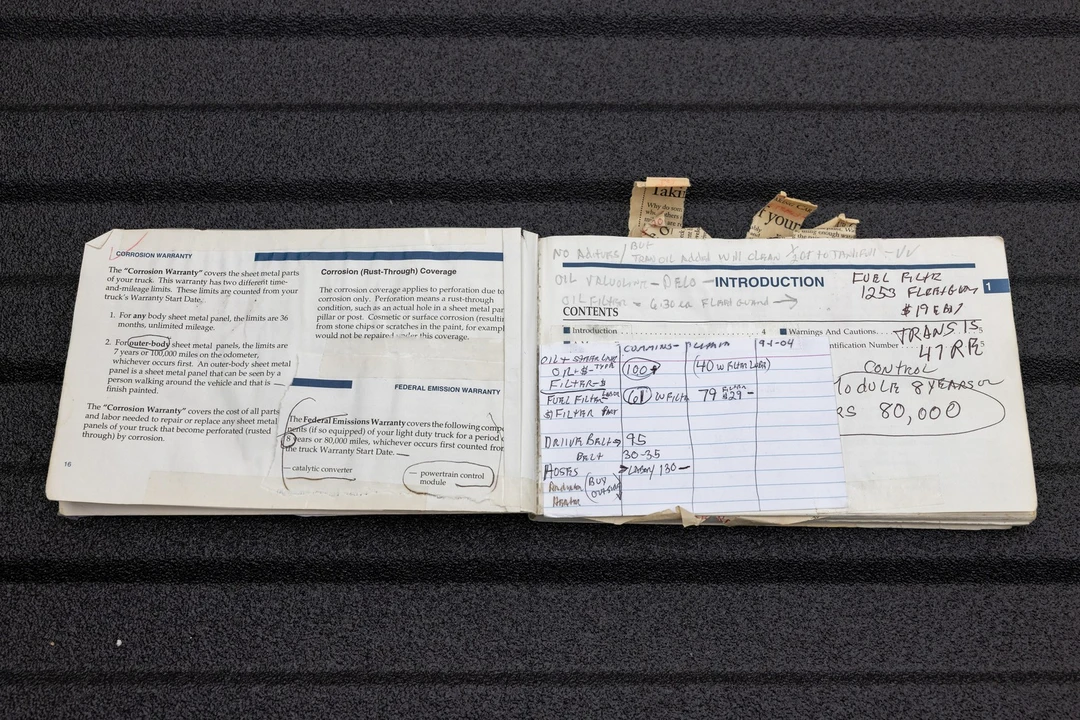 CORROSION WARRANTY
The "Corrosion Warranty" covers the sheet metal parts
of your truck. This warranty has two different time-
and-mileage limits. These limits are counted from your
truck's Warranty Start Date.
1. For any body sheet metal panel, the limits are 36
months, unlimited mileage.
2. For outer-body sheet metal panels, the limits are
7 years or 100,000 miles on the odometer,
whichever occurs first. An outer-body sheet metal
panel is a sheet metal panel that can be seen by a
person walking around the vehicle and that is
finish painted.
The "Corrosion Warranty" covers the cost of all parts
and labor needed to repair or replace any sheet metal
panels of your truck that become perforated (rusted
through) by corrosion.
16
Corrosion (Rust-Through) Coverage
The corrosion coverage applies to perforation due to
corrosion only. Perforation means a rust-through
condition, such as an actual hole in a sheet metal par
pillar or post. Cosmetic or surface corrosion (resultin
from stone chips or scratches in the paint, for exampl
would not be repaired under this coverage.
FEDERAL EMISSION WARRANTY
The Federal Emissions Warranty covers the following compo
nents (if so equipped) of your light duty truck for a period o
8 years or 80,000 miles, whichever occurs first counted from
the truck Warranty Start Date.
— catalytic converter
— powertrain control
module
Taki
Why do som
t your
NO
BUT
TRAN OIL ADDED WILL CLEAN
OIL VALVOLINE - DELO
INTRODUCTION
1
OIL FILTER - 6.30 ea FLEETGUARD →
CONTENTS
Introduction 4
Warnings And Cautions 5
ntification Number 5
FUEL FILTR
1253 FLEETGUARD
$19 EA
TRANS IS
47 RR
CONTROL
MODULE 8 YEARS OR
RS 80,000
CUMMINS- 9-1-04
OIL +
OIL + $ - TYPE 100+ (40 W FILTER LABOR)
FILTER-$
FUEL FILTER LABOR 61 W FILTR 79 FILTER $29 -
$ FILTER PART
DRIVE BELT → 95
BELT 30-35
HOSES → LABOR 130 -
(BUY
OUTSIDE
HEATER